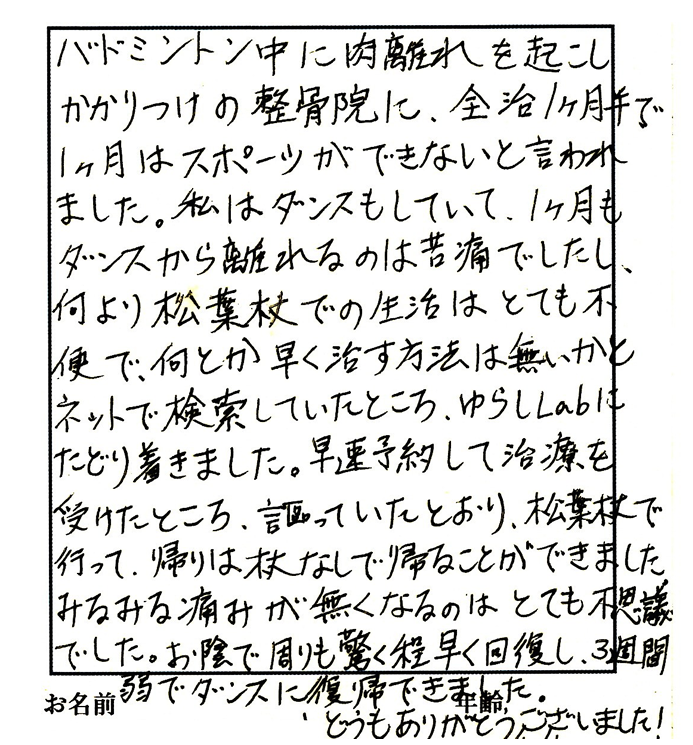 バドミントン中に肉離れを起こし
かかりつけの整骨院に、全治1ヶ月半で
1ヶ月はスポーツができないと言われ
ました。私はダンスもしていて、1ヶ月も
ダンスから離れるのは苦痛でしたし、
何より松葉杖での生活はとても不
便で、何とか早く治す方法は無いかと
ネットで検索していたところ、ゆらしLabに
たどり着きました。早速予約して治療を
受けたところ、謳っていたとおり、松葉杖で
行って、帰りは杖なしで帰ることができました
みるみる痛みが無くなるのはとても不思議
でした。お陰で周りも驚く程早く回復し、3週間
弱でダンスに復帰できました。
お名前 年齢
どうもありがとうございました!